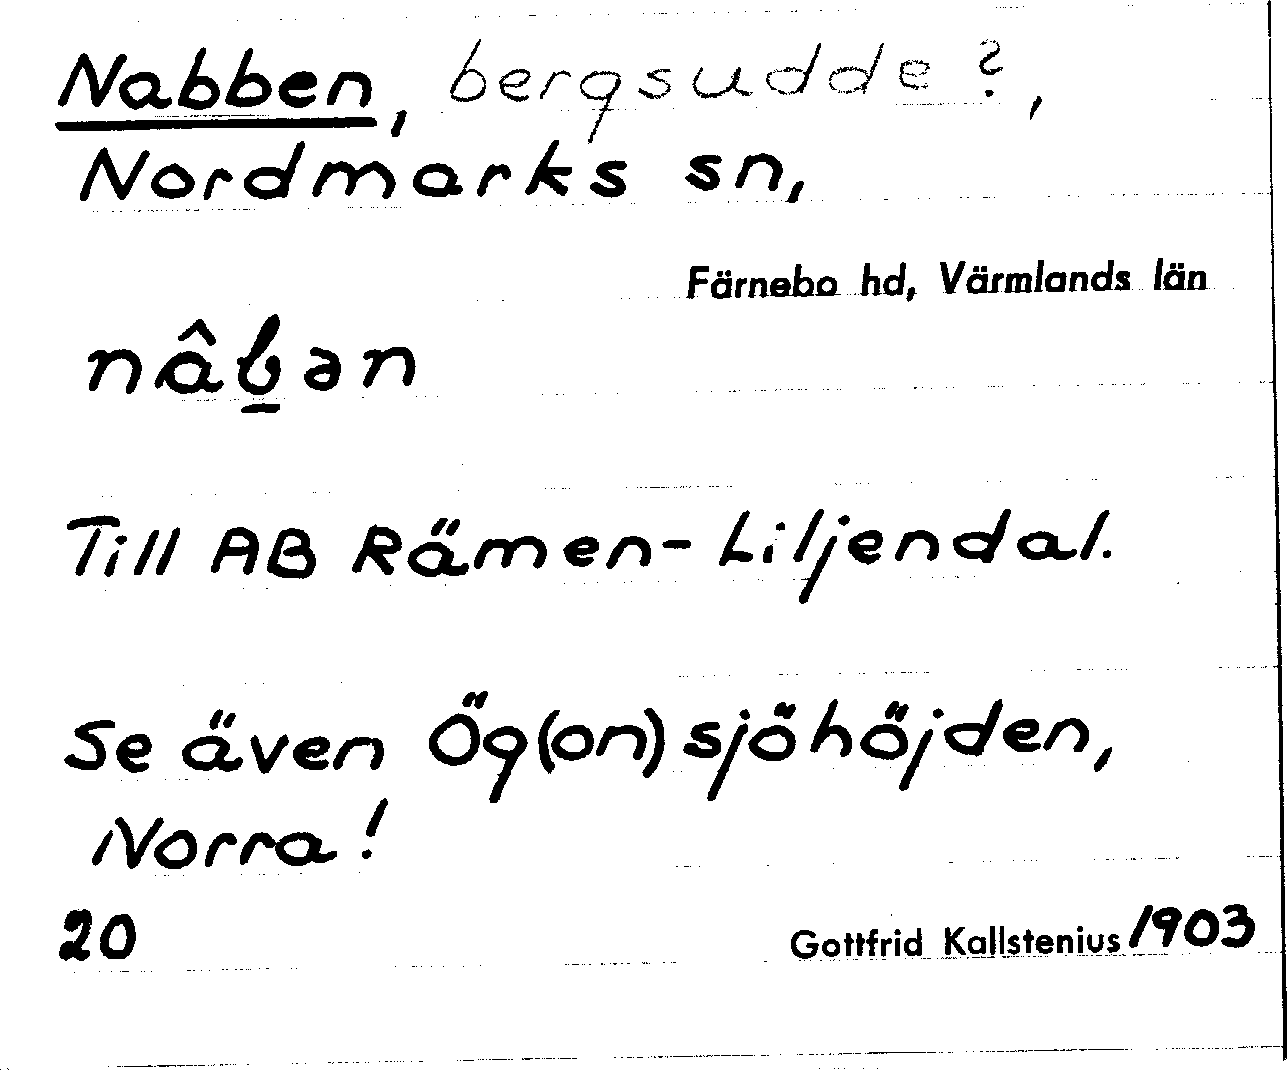 Nabben, bergsudde?,
Nordmarks sn,
Färnebo hd, Värmlands län
nâb̠ən
Till AB Rämen-Liljendal.
Se även Ög(on)sjöhöjden,
Norra!
20 Gottfrid Kallstenius 1903